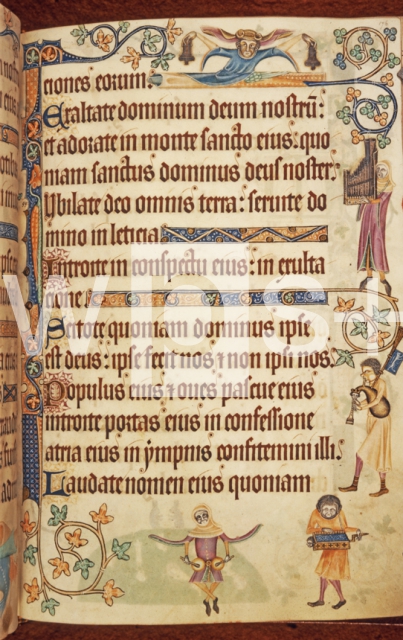 ciones eorum.
Exaltate dominum deum nostrū:
et adorate in monte sancto eius: quo
niam sanctus dominus deus noster.
Iubilate deo omnis terra: seruite do
mino in leticia.
Introite in conspectu eius: in exulta
cione.
Scitote quoniam dominus ipse
est deus: ipse fecit nos ⁊ non ipsi nos.
Populus eius ⁊ oues pascue eius
introite portas eius in confessione
atria eius in ympnis confitemini illi.
Laudate nomen eius quoniam